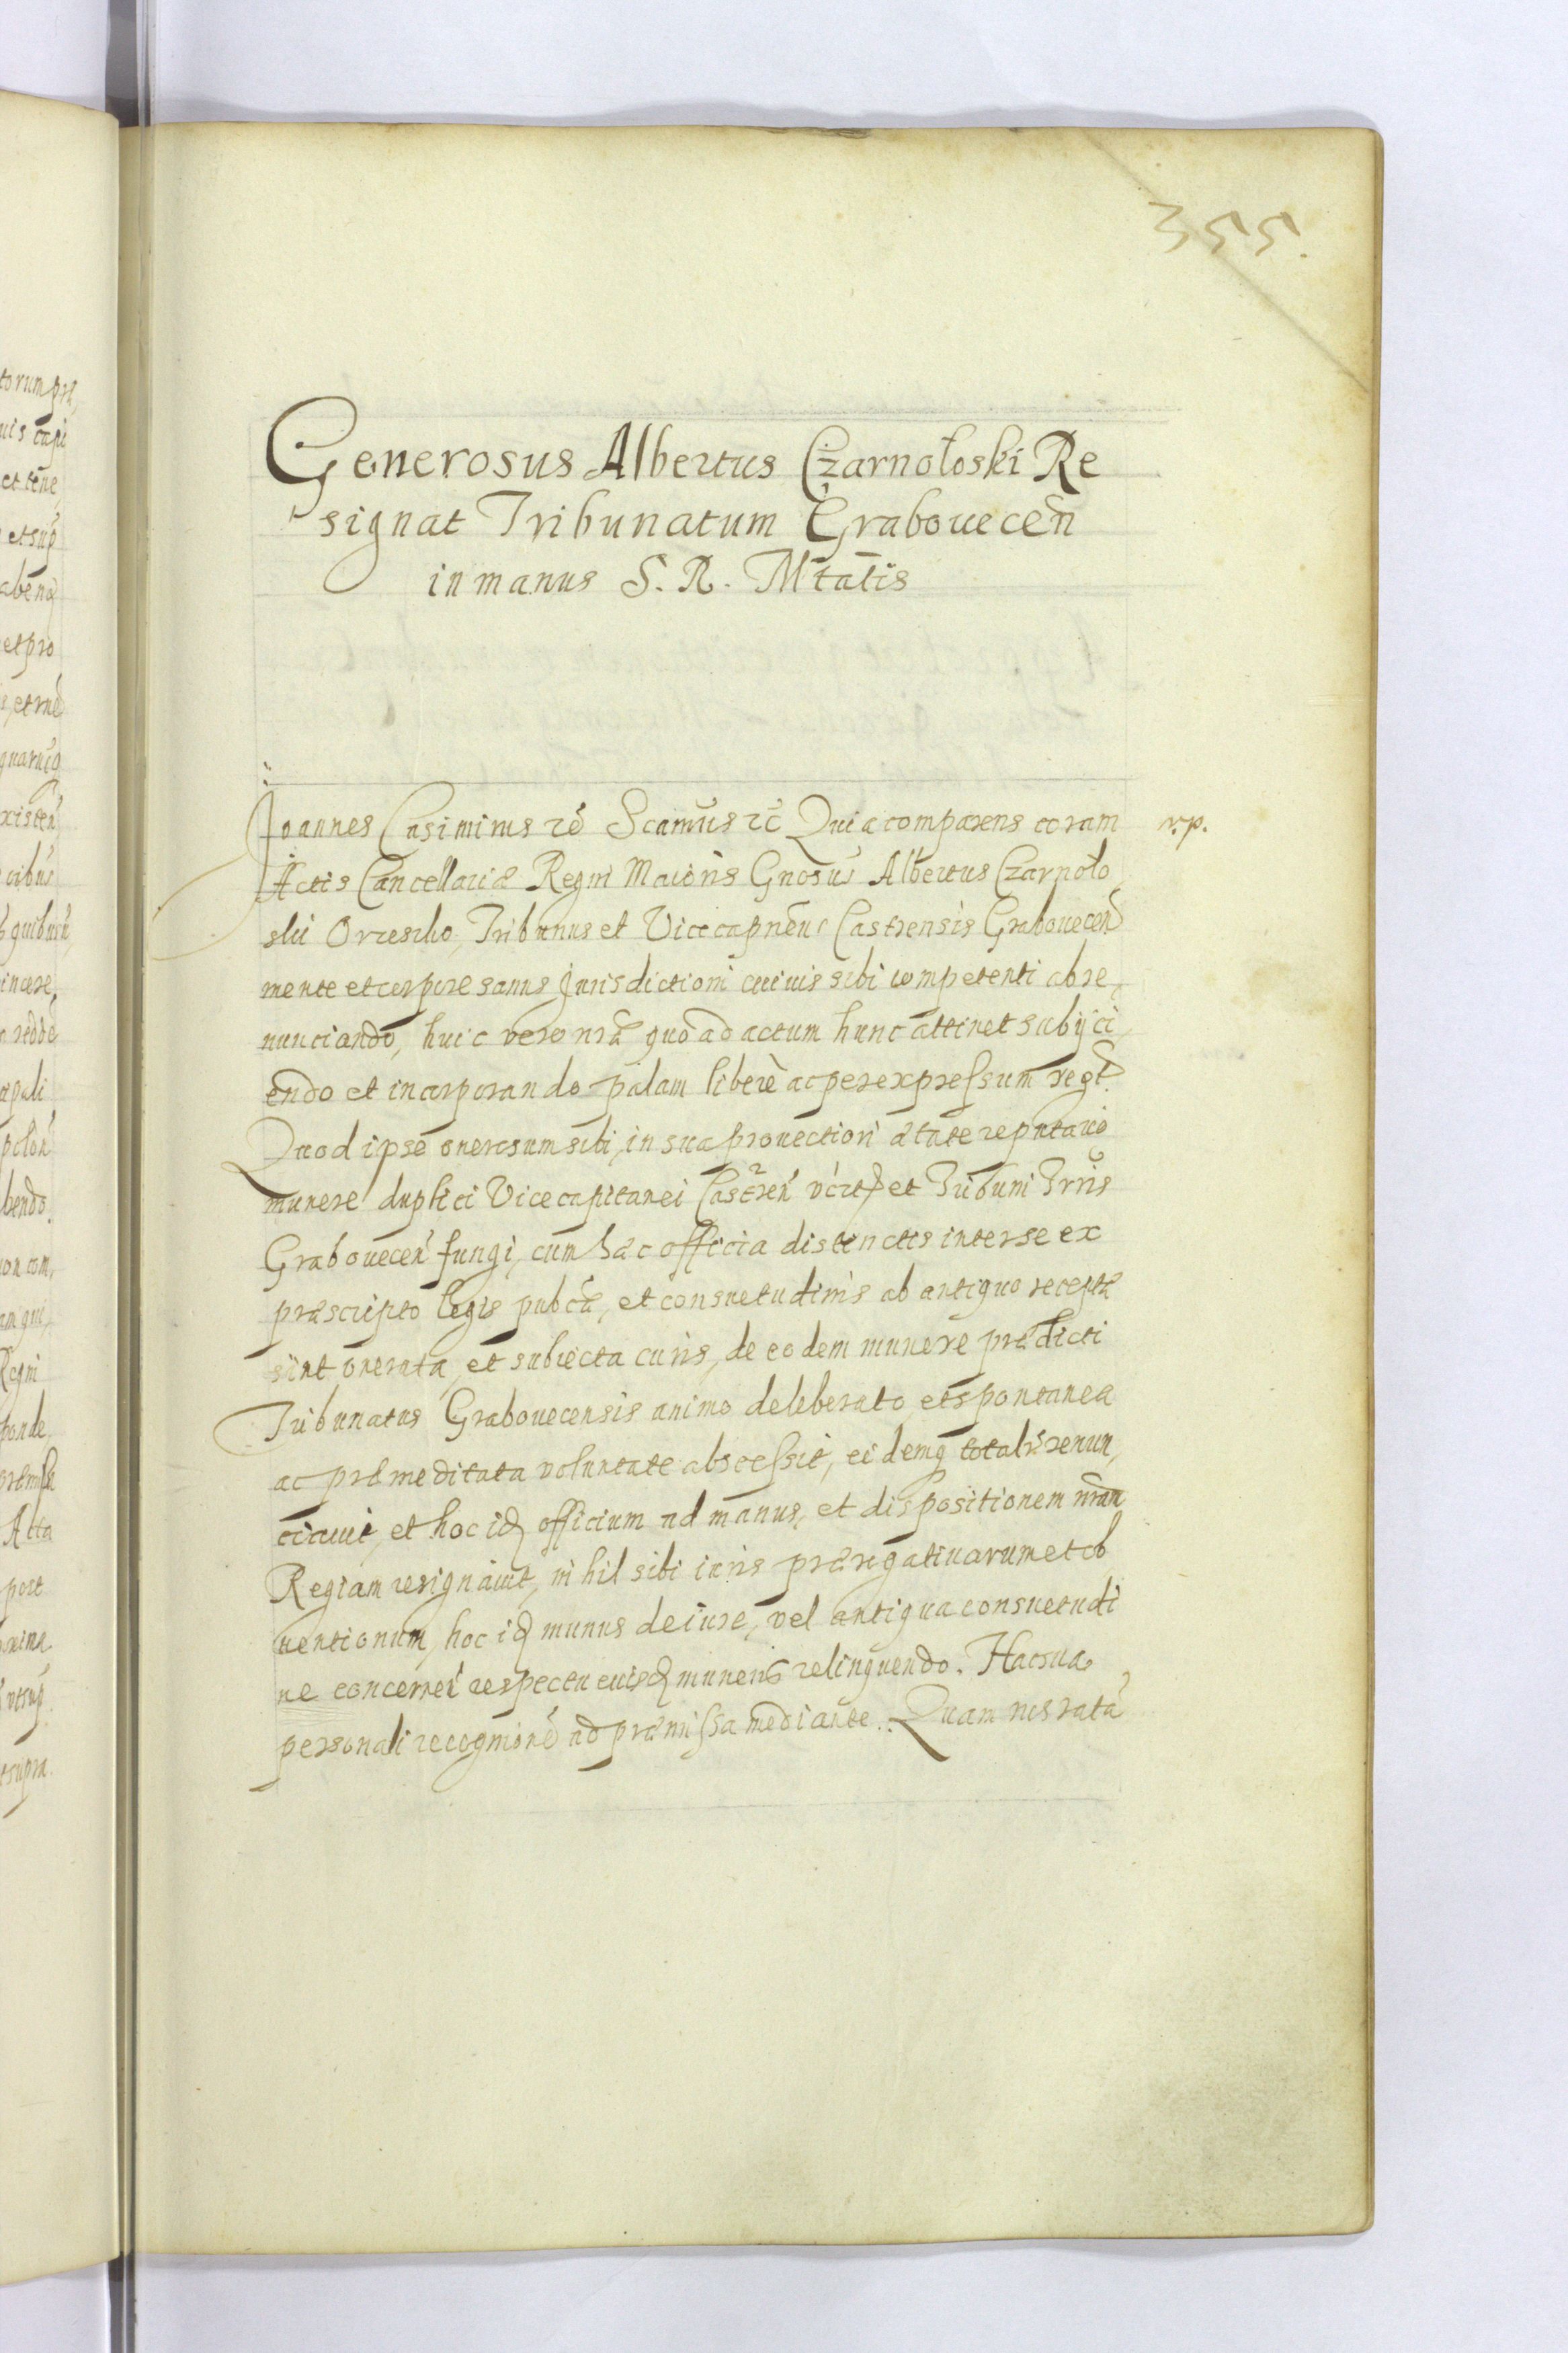 355.
Generosus Albertus Czarnołoski Re
signat Tribunatum Grabouecen̄
in manus S. R. Mtatis
Joannes Casimirus rē Scamūs rc̄ Quia comparens coram
n.p.
Actis Cancellariæ Regni Maioris Gnosus Albertus Czarnoło
ski Orzeszko, Tribunus et Vice capneus Castrensis Grabouecen̄
mente et corpore sanus Jurisdictioni cuiuis sibi competenti abre,
nunciando, huic vero nrā quo ad actum hunc attinet subijci
endo et incorporando palam liberè ac per expressum regt.
Quod ipse onerosum sibi, in sua prouectiori ætate reputando
munere duplici Vice capitanei Castren̄ vczt et Tribuni Trris
Grabouecen̄ fungi, cum hæc officia distinctis inter se ex
præscripto legis pubcæ, et consuetudinis ab antiquo receptæ
sint onerata, et subiecta curis, de eodem munere prædicti
Tribunatus Grabouecensis animo deleberato et spontanea
ac præmeditata voluntate abscessit, eidemq totalr renun,
ciauit, et hoc id officium ad manus, et dispositionem nram
Regiam resignauit, nihil sibi iuris prærogatiuarum et ob
uentionum, hoc id munus de iure, vel antiqua consuetudi
ne concernen̄ respectu euisd muneris relinquendo. Hac sua
personali recognione ad præmissa mediante. Quam nos ratā